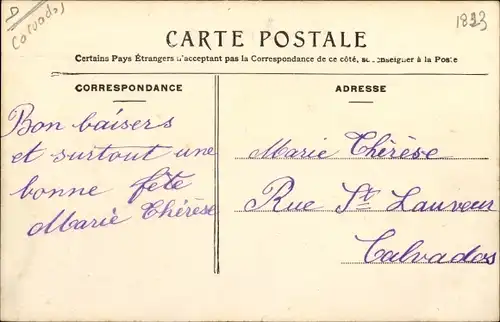 Calvados
1823
CARTE POSTALE
Certains Pays Étrangers n'acceptant pas la Correspondance de ce côté, se renseigner à la Poste
CORRESPONDANCE
Bon baisers
et surtout une
bonne fête
Marie Thérèse
ADRESSE
Marie Thérèse
Rue St Lauveur
Calvados